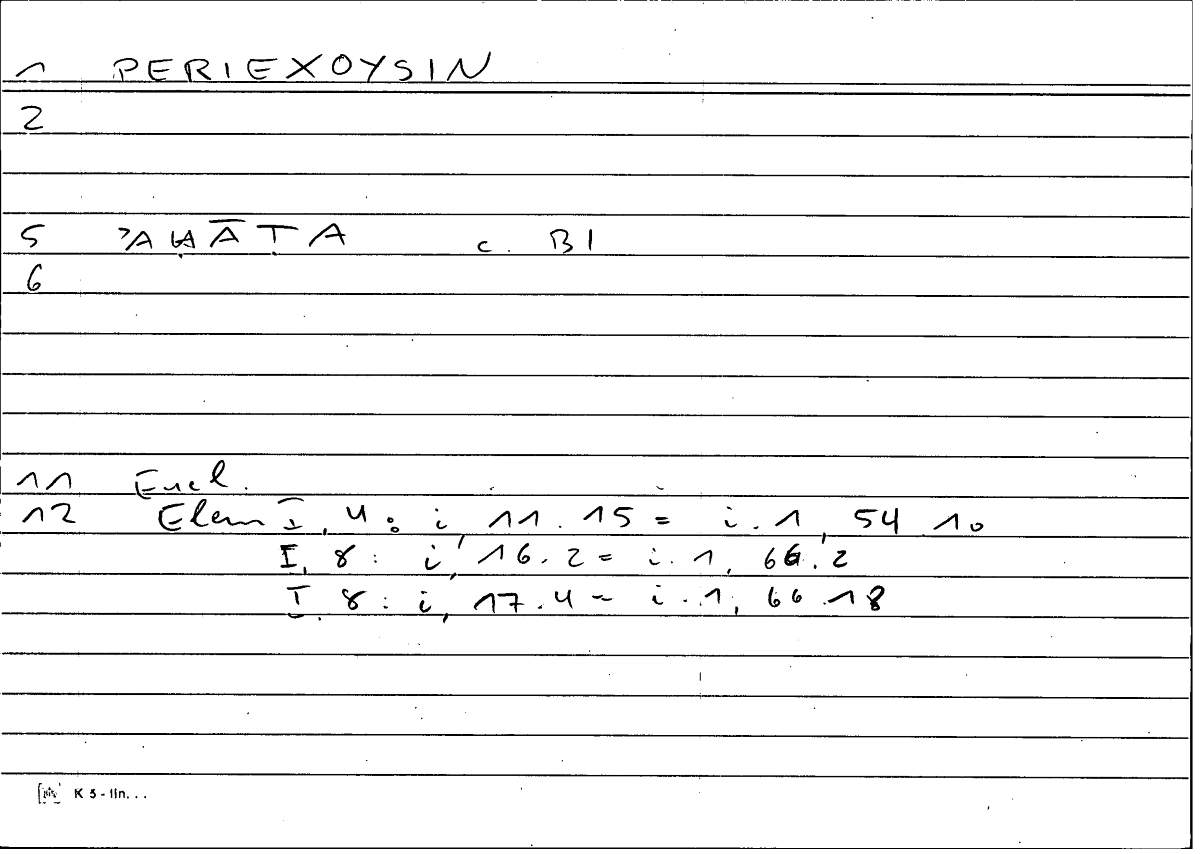 1 PERIEXOYSIN
2
5 ʾAḤĀṬA c. BI
6
11 Eucl.
12 Elem I, 4: i, 11.15 = i.1, 54 10
I, 8: i, 16.2 = i.1, 66.2
I, 8: i, 17.4 = i.1, 66.18
K 5 - lin...